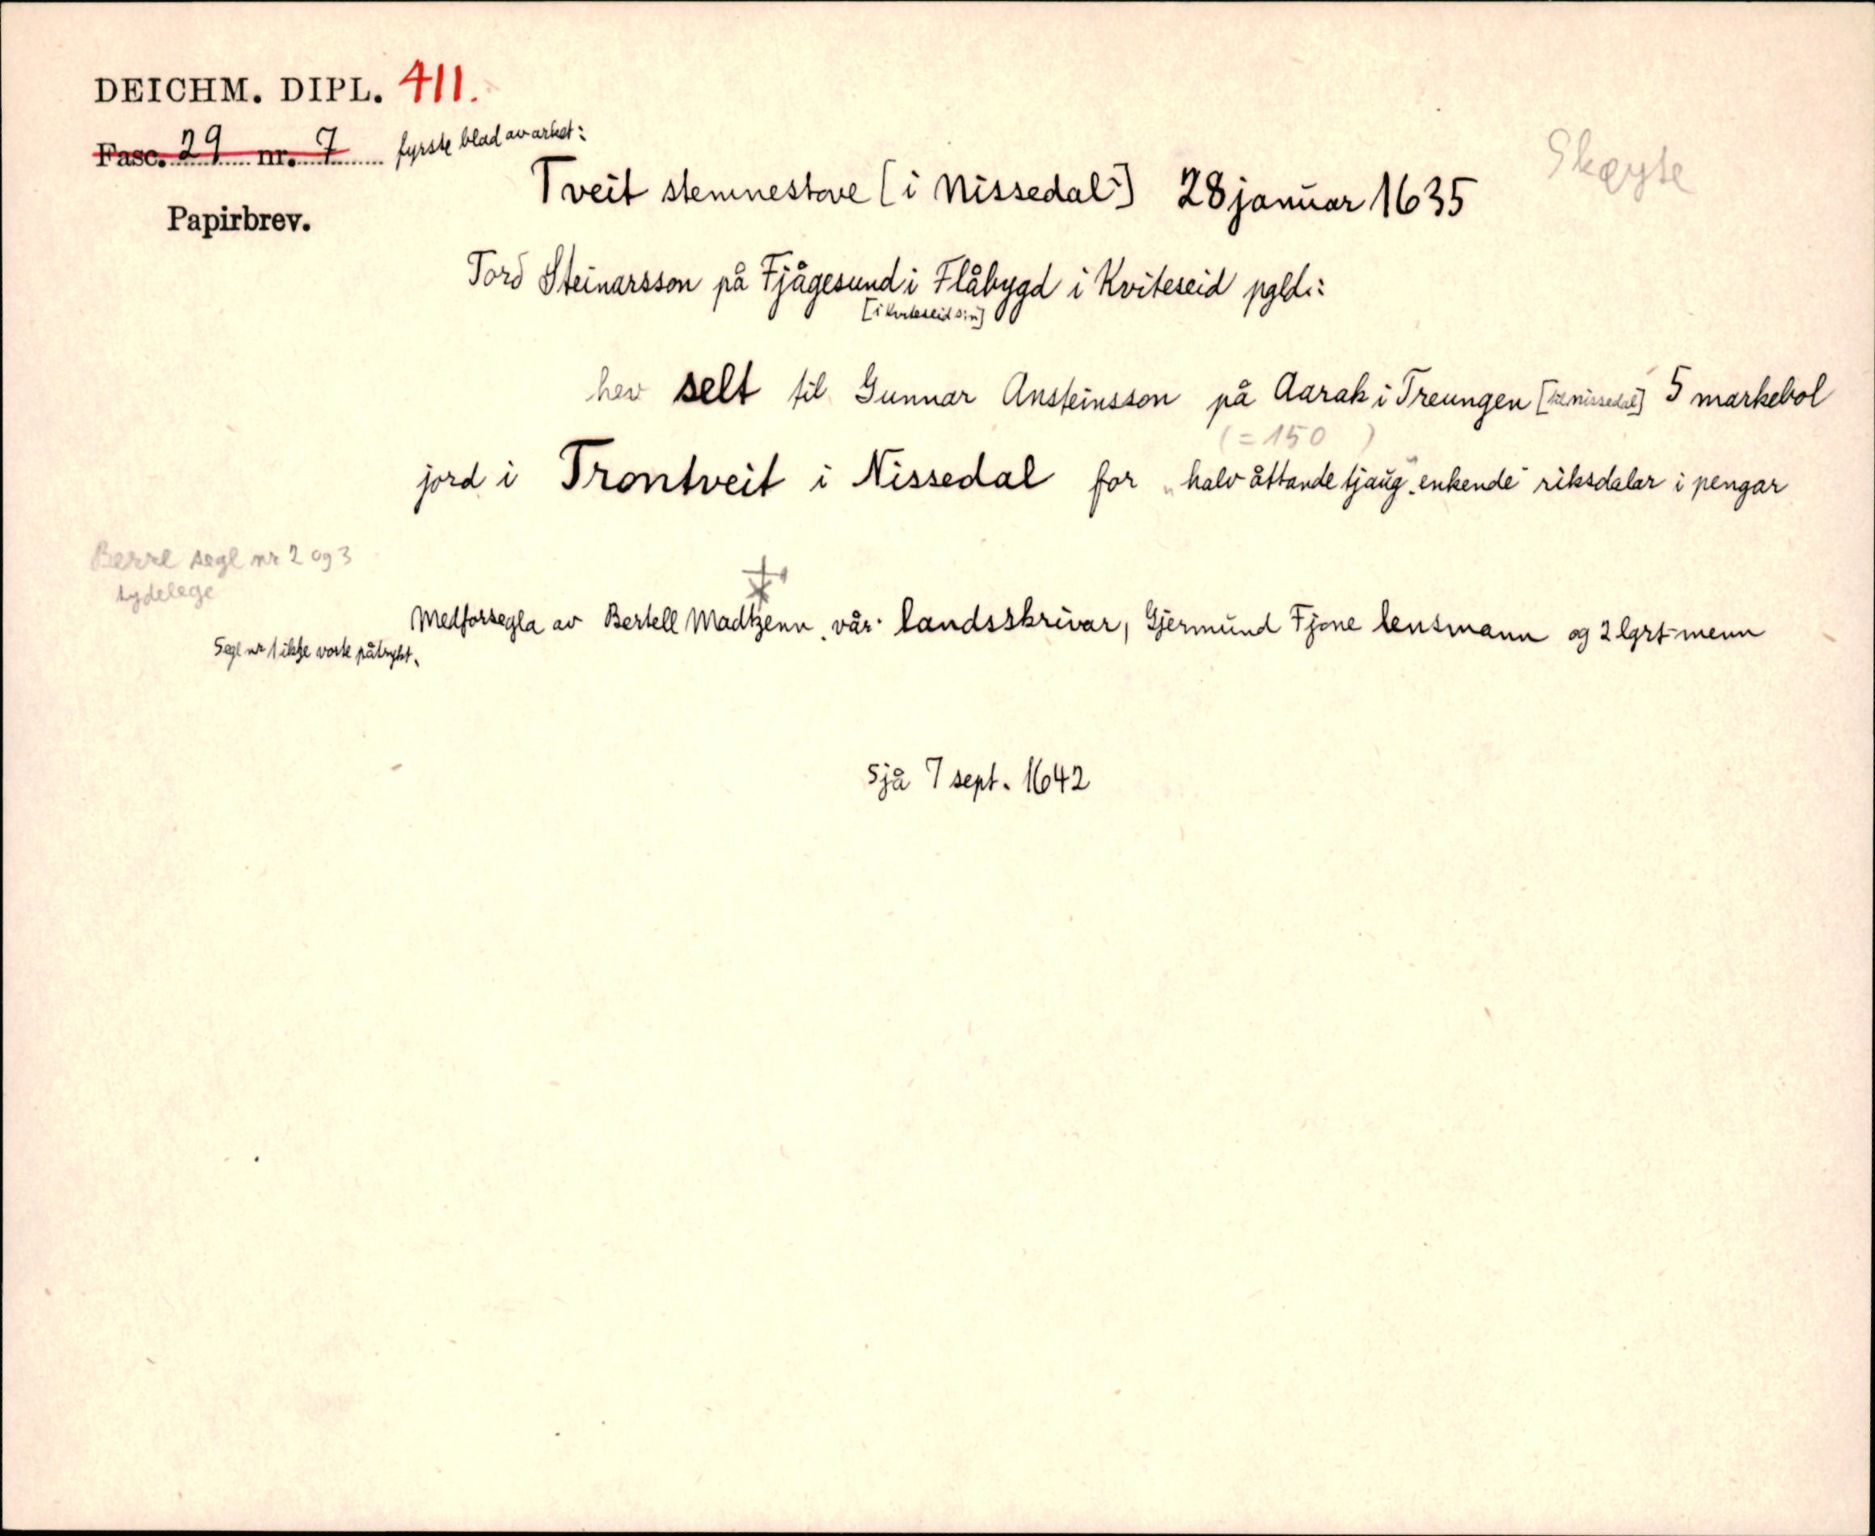 DEICHM. DIPL. 411.
Fasc. 29 nr. 7 fyrste blad av arket:
Skøyte
Papirbrev.
Tveit stemnestove [i Nissedal] 28 januar 1635
Tord Steinarsson på Fjågesund i Flåbygd i Kviteseid pgld.:
[i Kviteseid s:n]
hev selt til Gunnar Ansteinsson på Aarak i Treungen [Nissedal] 5 markebol
(= 150 )
jord i Trontveit i Nissedal for "halv åttande tjaug enkende" riksdalar i pengar
Berre segl nr 2 og 3
tydelege
Medforsegla av Bertell Madtzenn vår landsskrivar, Gjermund Fjone lensmann og 2 lgrt-menn
Segl nr 1 ikkje vorte påtrykt.
Sjå 7 sept. 1642